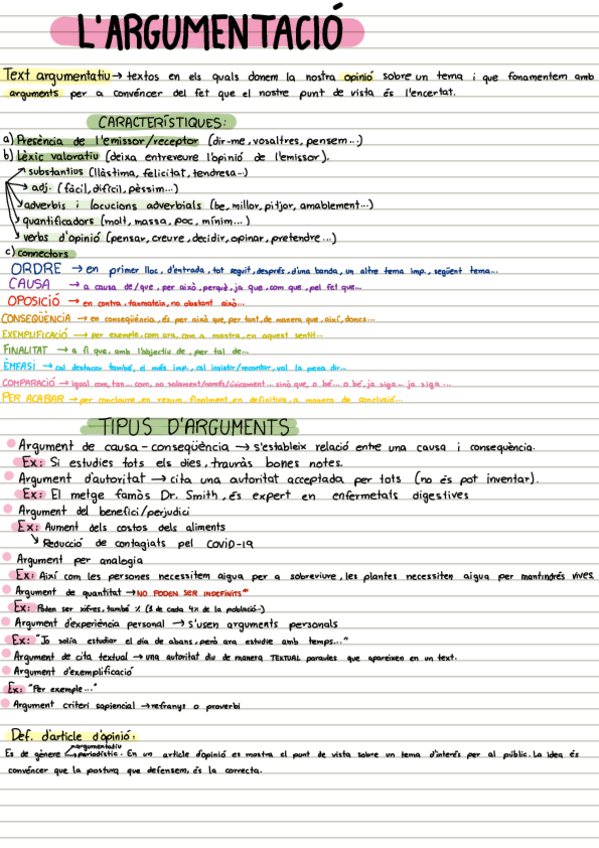 L'ARGUMENTACIÓ
Text argumentatiu → textos en els quals donem la nostra opinió sobre un tema i que fonamentem amb
arguments per a convéncer del fet que el nostre punt de vista és l'encertat.
CARACTERÍSTIQUES:
a) Presència de l'emissor/receptor (dir-me, vosaltres, pensem...)
b) Lèxic valoratiu (deixa entreveure l'opinió de l'emissor).
substantius (llàstima, felicitat, tendresa...)
adj. (fàcil, difícil, pèssim...)
adverbis i locucions adverbials (be, millor, pitjor, amablement...)
quantificadors (molt, massa, poc, mínim...)
verbs d'opinió (pensar, creure, decidir, opinar, pretendre...)
c) connectors
ORDRE → en primer lloc, d'entrada, tot seguit, després, d'una banda, un altre tema imp., següent tema...
CAUSA → a causa de/que, per això, perquè, ja que, com que, pel fet que...
OPOSICIÓ → en contra, tanmateix, no obstant això...
CONSEQÜÈNCIA → en conseqüència, és per això que, per tant, de manera que, així, doncs...
EXEMPLIFICACIÓ → per exemple, com ara, com a mostra, en aquest sentit...
FINALITAT → a fi que, amb l'objectiu de, per tal de...
ÈMFASI → cal destacar també, el més imp., cal insistir/recordar, val la pena dir...
COMPARACIÓ → igual com, tan... com, no solament/només/únicament... sinó que, o bé... o bé, ja siga... ja siga...
PER ACABAR → per concloure, en resum, finalment, en definitiva, a manera de conclusió...
TIPUS D'ARGUMENTS
Argument de causa-conseqüència → s'estableix relació entre una causa i conseqüència.
Ex: Si estudies tots els dies, trauràs bones notes.
Argument d'autoritat → cita una autoritat acceptada per tots (no és pot inventar).
Ex: El metge famós Dr. Smith, és expert en enfermetats digestives
Argument del benefici/perjudici
Ex: Aument dels costos dels aliments
Reducció de contagiats pel COVID-19
Argument per analogia
Ex: Així com les persones necessitem aigua per a sobreviure, les plantes necessiten aigua per mantindrés vives.
Argument de quantitat → NO PODEN SER INDEFINITS*
Ex: Poden ser xifres, també % (1 de cada 4% de la població...)
Argument d'experiència personal → s'usen arguments personals
Ex: "Jo solia estudiar el dia de abans, però ara estudie amb temps..."
Argument de cita textual → una autoritat diu de manera TEXTUAL paraules que apareixen en un text.
Argument d'exemplificació
Ex: "Per exemple..."
Argument criteri sapiencial → refranys o proverbi
Def. d'article d'opinió:
argumentatiu
Es de gènere periodístic. En un article d'opinió es mostra el punt de vista sobre un tema d'interés per al públic. La idea és
convéncer que la postura que defensem, és la correcta.